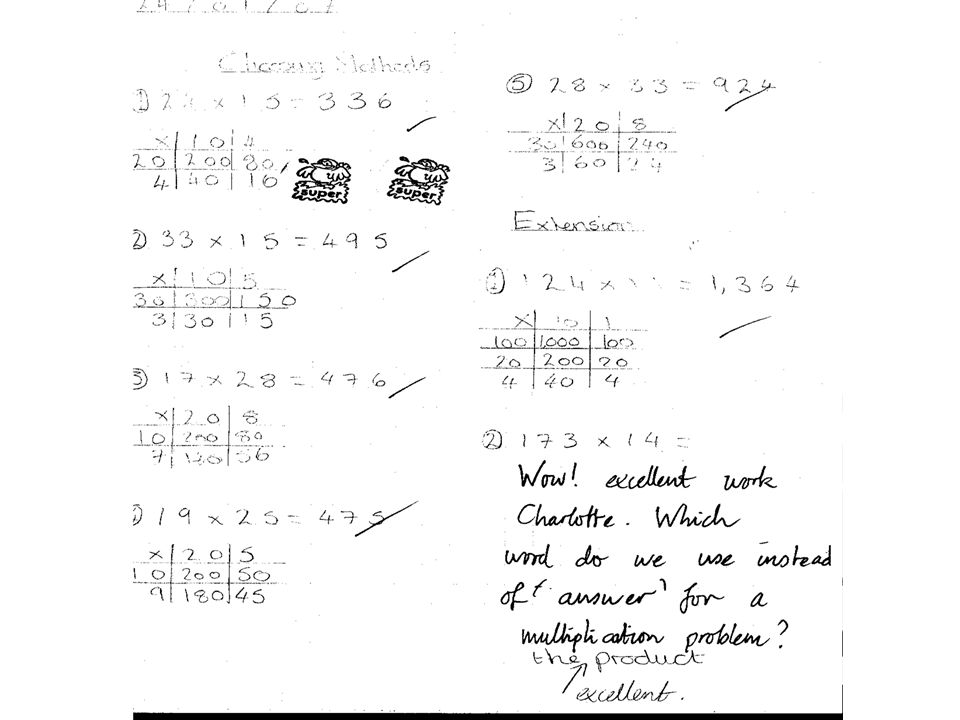 24/01/07
Choosing Methods
1) 24 x 15 = 336
x | 10 | 4
20 | 200 | 80
4 | 40 | 16
super
super
2) 33 x 15 = 495
x | 10 | 5
30 | 300 | 150
3 | 30 | 15
3) 17 x 28 = 476
x | 20 | 8
10 | 200 | 80
7 | 140 | 56
19 x 25 = 475
x | 20 | 5
10 | 200 | 50
9 | 180 | 45
5) 28 x 33 = 924
x | 20 | 8
30 | 600 | 240
3 | 60 | 24
Extension
1) 124 x 11 = 1,364
x | 10 | 1
100 | 1000 | 100
20 | 200 | 20
4 | 40 | 4
2) 173 x 14 =
Wow! excellent work
Charlotte. Which
word do we use instead
of 'answer' for a
multiplication problem?
the product
excellent.